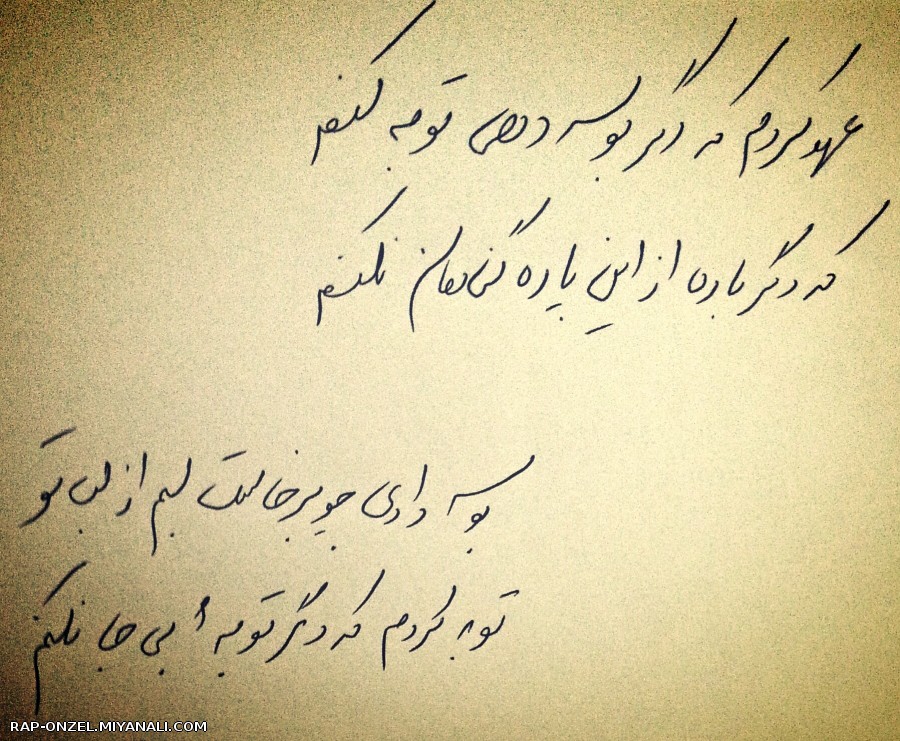 عهد کردم که اگر بوسه دهی توبه کنم
که دگر باره از این باره گناهان نکنم
بوسه دادی چو برخاست لبم از لب تو
توبه کردم که دگر توبهٔ بی جا نکنم
RAP-ONZEL.MIYANALI.COM